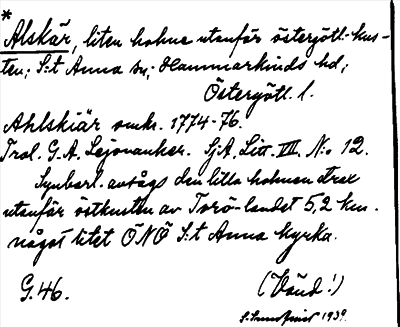 *
Alskär, liten holme utanför östergötl. kus-
ten; S:t Anna sn; Hammarkinds hd;
Östergötl. l.
Ahlskiär omkr. 1774-76.
Trol. G.A. Lejonanker. SjA, Litt. VII No 12.
Synbarl. avsågs den lilla holmen strax
utanför östkusten av Torö-landet 5,2 km.
något litet ÖNÖ S:t Anna kyrka.
G. 46.
(Vänd!)
1939.